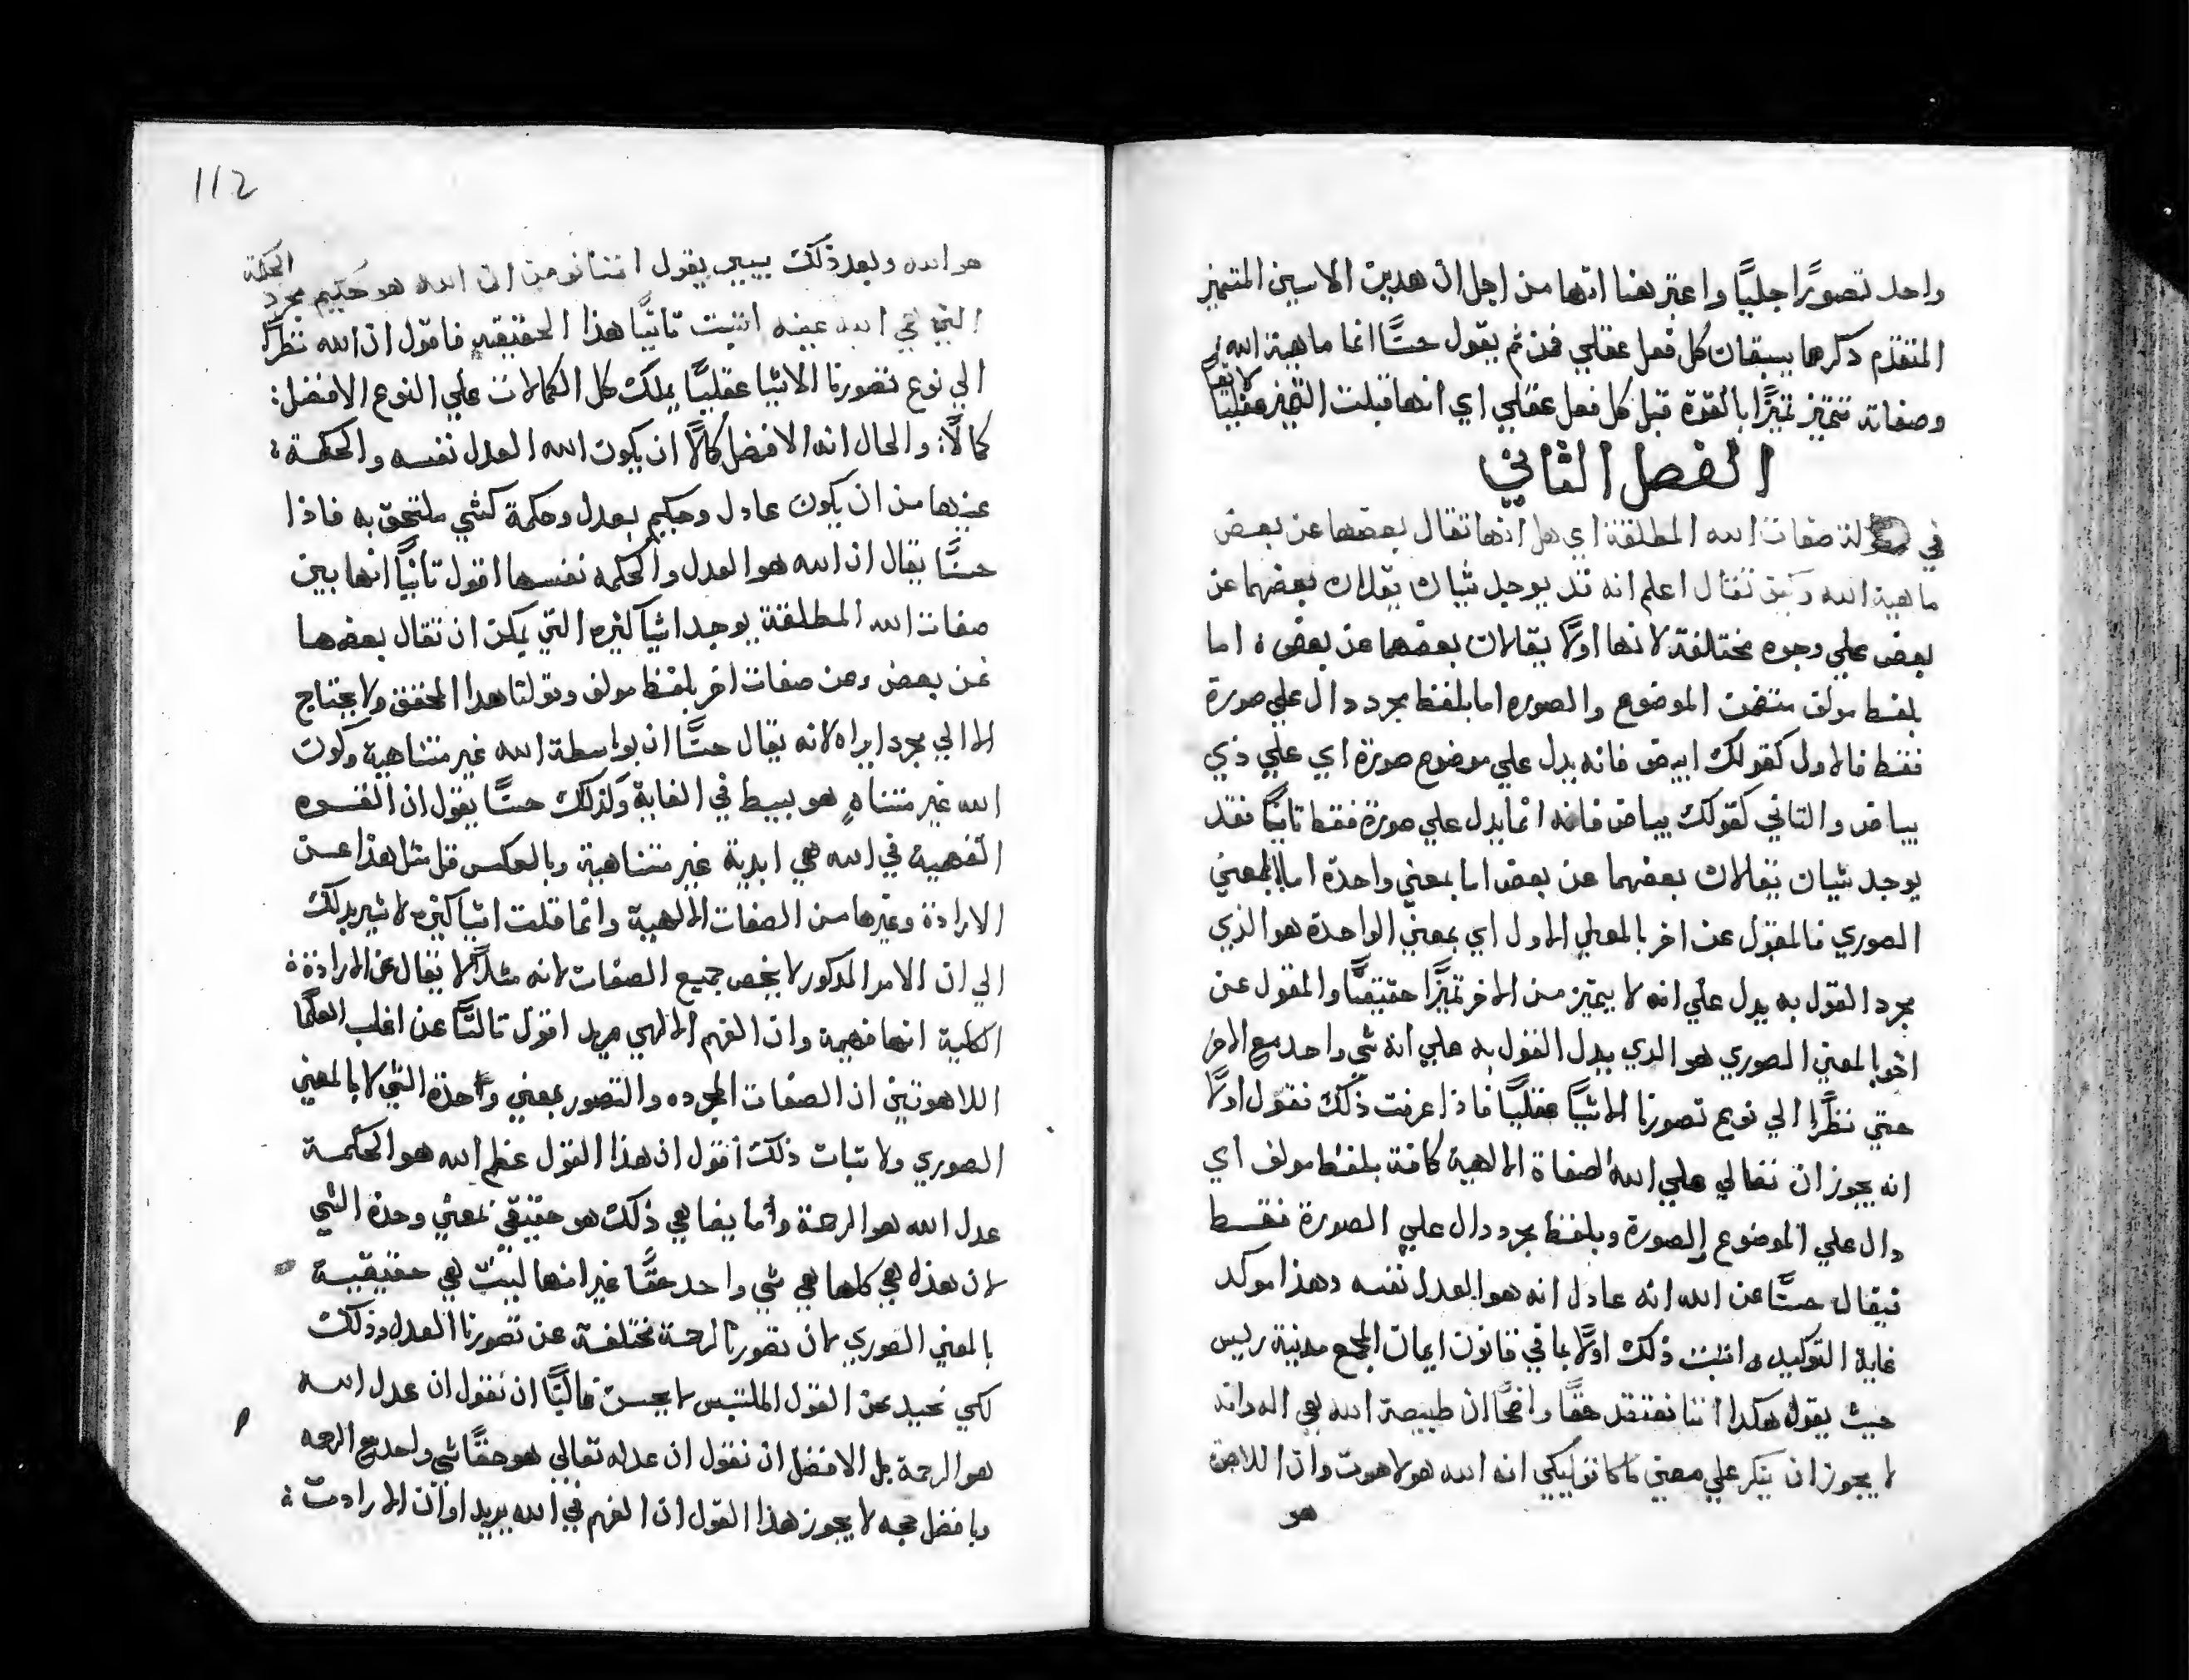 واحد تصورًا جليًا واعتبر هنا انها من اجل ان هدين الاسين المتميز
المتقدم دكرها يسبقان كل فعل عقلي فمن ثم يقول حسنًا انما ماهية الله
وصفاته تتميز تميزًا بالقوة قبل كل فعل عقلي اي انها قبلت التميز عقليًا
الفصل الثاني
في صفات الله المطلقة اي هل انها تقال بعضها عن بعض
ماهية الله وكيف تقال اعلم انه قد يوجد شيان يقلان بعضهما عن
بعض علي وجوه مختلفة لانها اولًا يقالان بعضهما عن بعض ؛ اما
بلفظ مولف متضمن الموضوع والصوره اما بلفظ مجرد دال علي صورة
فقط فالاول كقولك ابيض فانه يدل علي موضوع صورة اي علي ذي
بياض والتاني كقولك بياض فانه انما يدل علي صورة فقط تانيًا فقد
يوجد شيان يقالان بعضهما عن بعض اما بمعني واحدة اما بالمعني
الصوري فالمقول عن اخر بالمعني الاول اي بمعني الواحدة هو الذي
مجرد القول به يدل علي انه لا يتميز من الاخر تميزًا حقيقيًا والمقول عن
اخر بالمعني الصوري هو الدي يدل القول به علي انه شي واحد مع الاخر
حتي نظرًا الي نوع تصورنا الاشيًا عقليًا فاذا عرفت ذلك نقول اولًا
انه يجوز ان تقالي علي الله الصفاة الالهية كافة بلفظ مولف اي
دال علي الموضوع والصورة وبلفظ مجرد دال علي الصورة فقط
فيقال حسنًا عن الله انه عادل انه هو العدل نفسه وهذا موكد
غاية التوكيد واتبت ذلك اولًا بما في قانون ايمان المجمع مدنية ريس
حيث يقول هكدا اننا نعتقد حقًا واضحًا ان طبيعة الله هي اله وانه
لا يجوز ان ينكر علي معني كاتوليكي انه الله هو لاهوت وان اللاهوت
هو
112
هو الله وبعد ذلك يقول اننا نومن ان الله هو حكيم بمجرد الحكمة
التي هي الله عينه اتبت تانيًا هذا الحقيقه فاقول ان الله نظرًا
الي نوع تصورنا الاشيا عقليًا يملك كل الكمالات علي النوع الافضل :
كمالًا: والحال انه الافضل كمالًا ان يكون الله العدل نفسه والحكمة ؛
عينها من ان يكون عادل وحكيم بعدل وحكمة كشي ملتحق به فاذا
حسنًا يقال ان الله هو العدل والحكمه نفسها اقول تانيًا انها بين
صفات الله المطلقة يوجد اشيا كثيره التي يمكن ان تقال بعضها
عن بعض وعن صفات اخر بلفظ مولف وقولنا هدا المحقق ولا يحتاج
الا الي مجرد ايراه لانه يقال حسنًا ان بواسطة الله غير متناهية وكون
الله غير متناهٍ هو بسيط في الغاية وكذلك حسنًا يقول ان القسوه
الفهمية في الله هي ابدية غير متناهية وبالعكس قل مثل هذا عن
الارادة وغيرها من الصفات الالهية وانما قلت اشيا كثيره لاشير بدلك
الي ان الامر المدكور لا يخص جميع الصفات لانه مثلًا لا يقال عن الارادة ؛
الكلية انها فهمية وان الفهم الالهي مريد اقول تالتًا عن اغلب العلما
اللاهوتين ان الصفات المجرده والتصور بمعني واحدة التي لا بالمعني
الصوري ولاتبات ذلك اقول ان هذا القول عظم الله هو الحكمة
عدل الله هو الرحمة وما يضاهي ذلك هو حقيقي بمعني وحدة الشي
لان هذه هي كلها هي شي واحد حقًا غير انها ليست هي حقيقية
بالمعني الصوري لان تصورنا الرحمة مختلفة عن تصورنا العدل وذلك
لكي نحيد عن القول الملتبس لا يحسن غالبًا ان نقول ان عدل الله
هو الرحمة بل الافضل ان نقول ان عدله تعالي هو حقًا شي واحد مع الرحمه
وبافضل حجه لا يجوز هذا القول ان الفهم في الله يريد او ان الارادت ؛